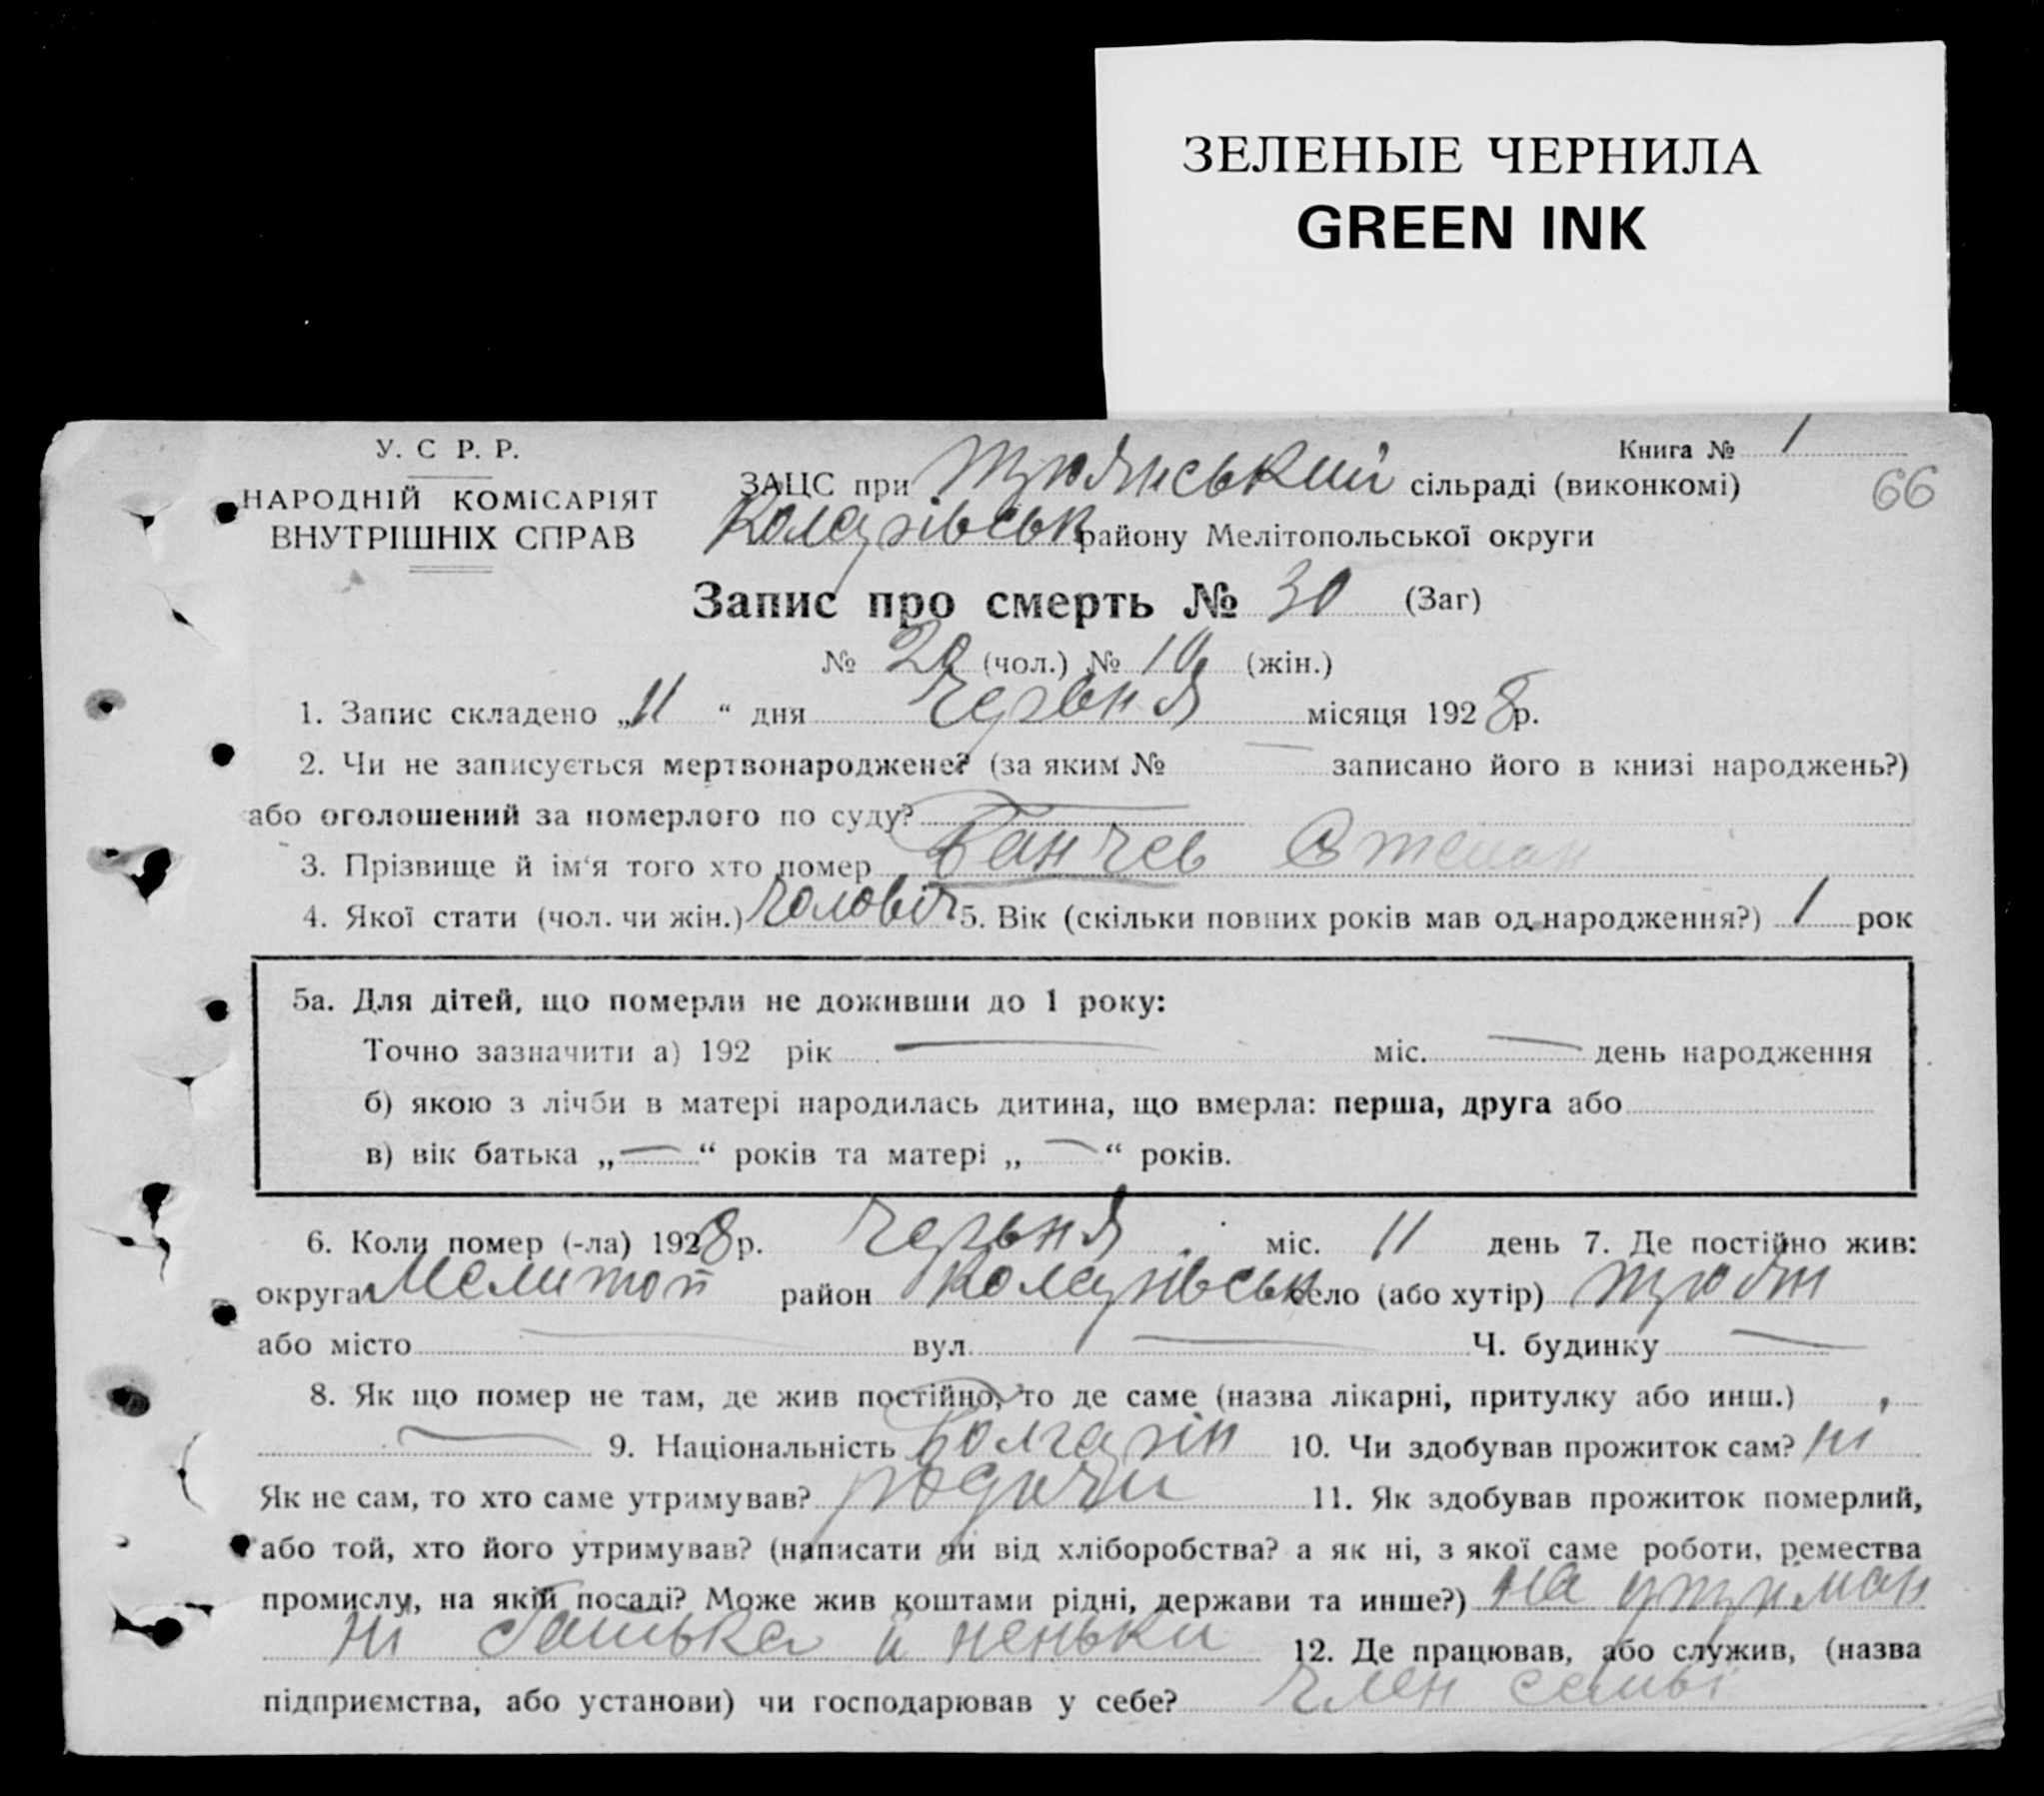 ЗЕЛЕНЫЕ ЧЕРНИЛА
GREEN INK
Книга № 1
66
У. С Р. Р.
НАРОДНІЙ КОМІСАРІЯТ
ВНУТРІШНІХ СПРАВ
ЗАЦС при сільраді (виконкомі)
Коларівськ району Мелітопольської округи
Запис про смерть № 30 (Заг)
№ 20 (чол.) № 10 (жін.)
1. Запис складено „11 “ дня червня місяця 1928 р.
2. Чи не записується мертвонароджене? (за яким № — записано його в книзі народжень?)
або оголошений за померлого по суду? —
3. Прізвище й ім'я того хто помер Банчев Степан
4. Якої стати (чол. чи жін.) чоловіч 5. Вік (скільки повних років мав од народження?) 1 рок
5а. Для дітей, що померли не доживши до 1 року:
Точно зазначити а) 192 рік — міс. — день народження
б) якою з лічби в матері народилась дитина, що вмерла: перша, друга або
в) вік батька „—“ років та матері „—“ років.
6. Коли помер (-ла) 1928 р. червня міс. 11 день 7. Де постійно жив:
округа Мелитоп район Коларівськ село (або хутір)
або місто — вул. — Ч. будинку —
8. Як що помер не там, де жив постійно, то де саме (назва лікарні, притулку або инш.)
— 9. Національність Болгарін 10. Чи здобував прожиток сам? ні
Як не сам, то хто саме утримував? родичи 11. Як здобував прожиток померлий,
або той, хто його утримував? (написати чи від хліборобства? а як ні, з якої саме роботи, ремества
промислу, на якій посаді? Може жив коштами рідні, держави та инше?) на утриман
ні батька й неньки 12. Де працював, або служив, (назва
підприємства, або установи) чи господарював у себе? член семьі